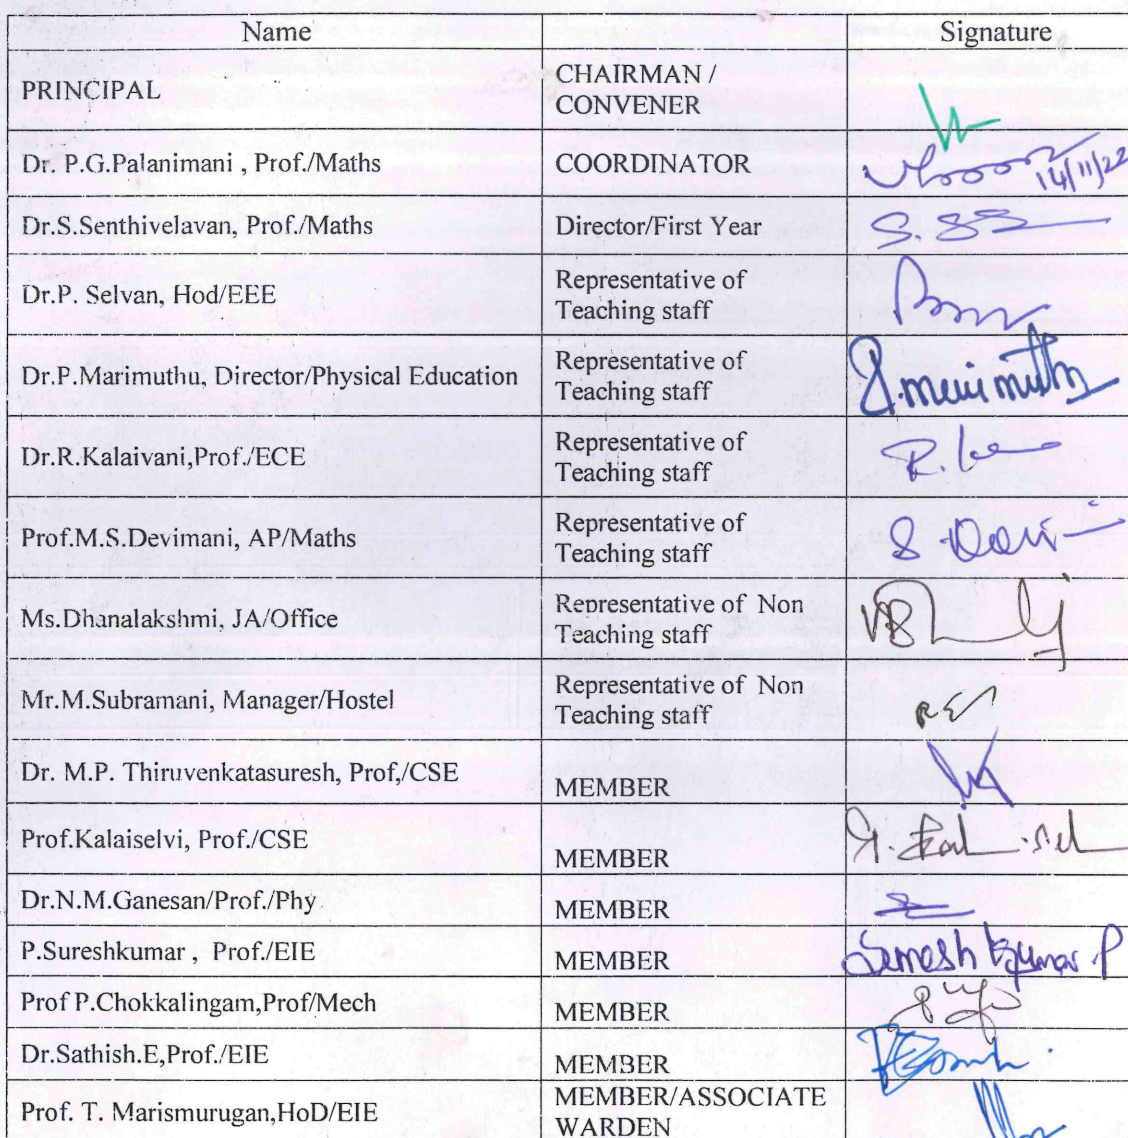 Name Signature
PRINCIPAL CHAIRMAN /
CONVENER
Dr. P.G.Palanimani , Prof./Maths COORDINATOR 14/11/22
Dr.S.Senthivelavan, Prof./Maths Director/First Year
Dr.P. Selvan, Hod/EEE Representative of
Teaching staff
Dr.P.Marimuthu, Director/Physical Education Representative of
Teaching staff
Dr.R.Kalaivani,Prof./ECE Representative of
Teaching staff
Prof.M.S.Devimani, AP/Maths Representative of
Teaching staff
Ms.Dhanalakshmi, JA/Office Representative of Non
Teaching staff
Mr.M.Subramani, Manager/Hostel Representative of Non
Teaching staff
Dr. M.P. Thiruvenkatasuresh, Prof./CSE MEMBER
Prof.Kalaiselvi, Prof./CSE MEMBER
Dr.N.M.Ganesan/Prof./Phy MEMBER
P.Sureshkumar , Prof./EIE MEMBER
Prof P.Chokkalingam,Prof/Mech MEMBER
Dr.Sathish.E,Prof./EIE MEMBER
Prof. T. Marismurugan,HoD/EIE MEMBER/ASSOCIATE
WARDEN